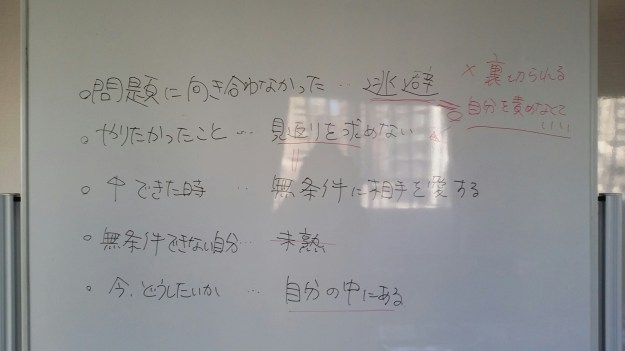 。問題に向き合わなかった … 逃避
× 裏切られる
自分を責めなくていい
。やりたかったこと … 見返りを求めない
。↑できた時 … 無条件に相手を愛する
。無条件できない自分… 未熟
。今、どうしたいか … 自分の中にある